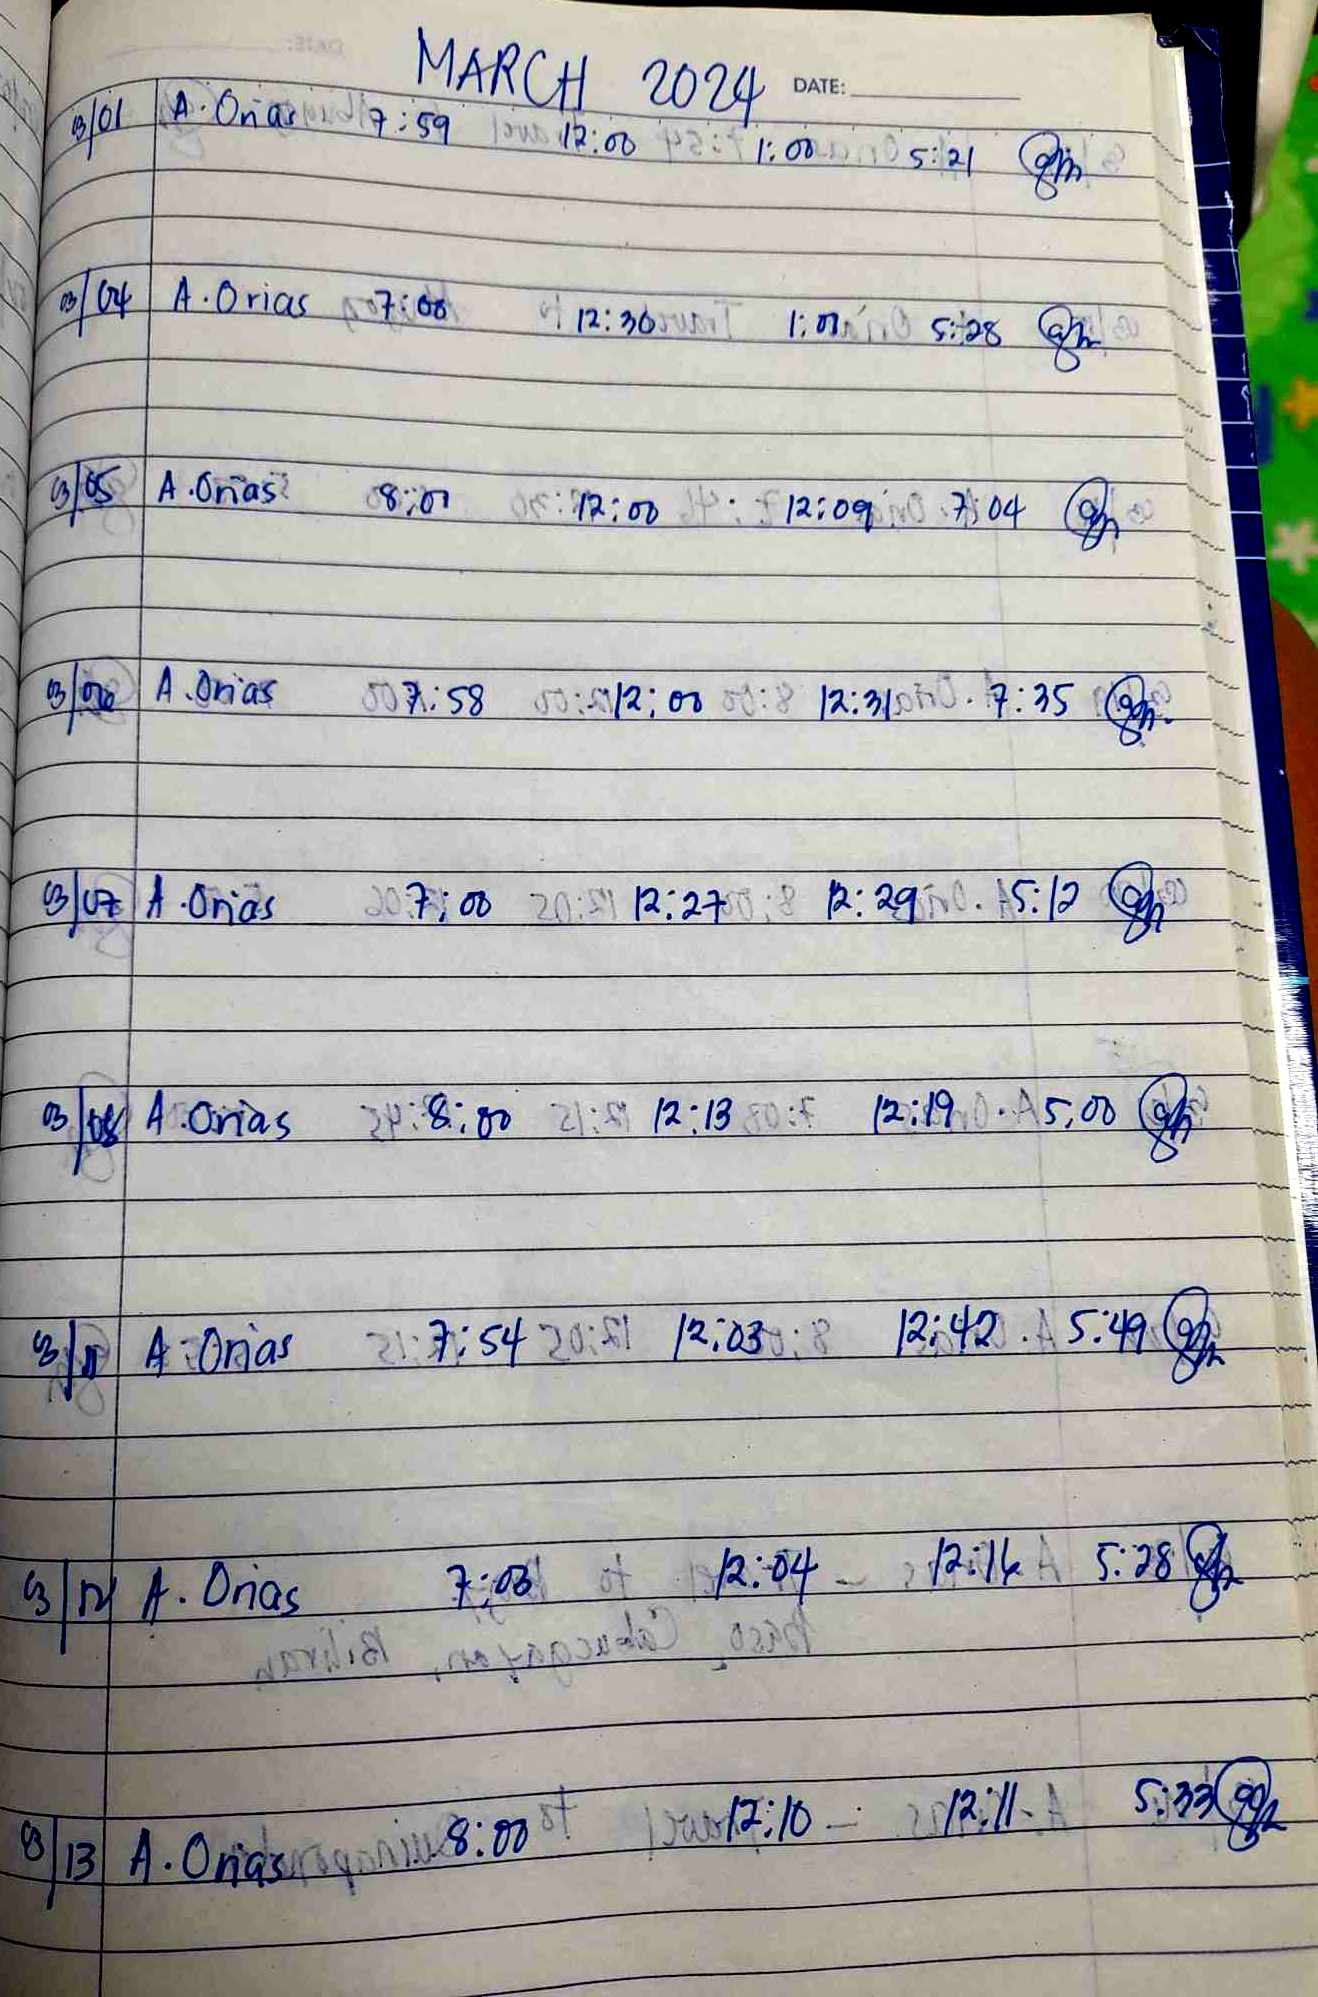 MARCH 2024 DATE:
03/01 A. Orias 7:59 12:00 1:00 5:21
03/04 A. Orias 7:00 12:30 1:01 5:28
03/05 A. Orias 8:01 12:00 12:09 7:04
03/06 A. Orias 7:58 12:00 12:31 7:35
03/07 A. Orias 7:00 12:27 12:29 5:12
03/08 A. Orias 8:00 12:13 12:19 5:00
03/11 A. Orias 7:54 12:03 12:42 5:49
03/12 A. Orias 7:03 12:04 12:16 5:28
03/13 A. Orias 8:00 12:10 12:11 5:33